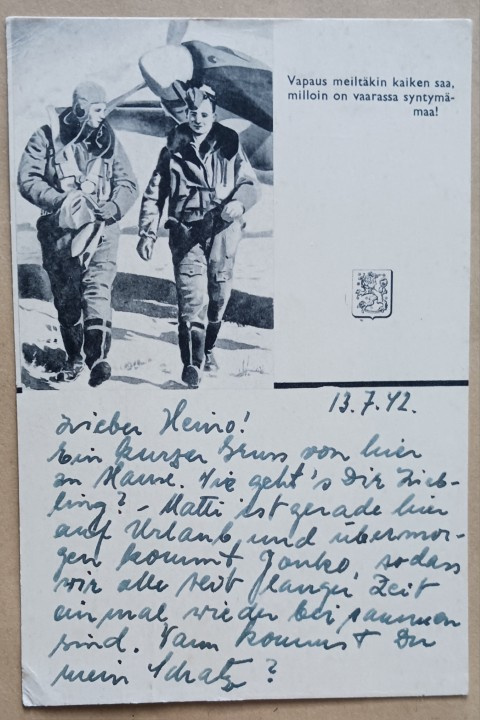 Vapaus meiltäkin kaiken saa,
milloin on vaarassa syntymä-
maa!
13.7.42.
Lieber Heino!
Ein kurzer Gruss von hier
zu Hause. Wie geht's Dir Lieb-
ling? – Matti ist gerade hier
auf Urlaub und übermor-
gen kommt Jouko, sodass
wir alle seit langer Zeit
einmal wieder beisammen
sind. Wann kommst Du
mein Schatz?